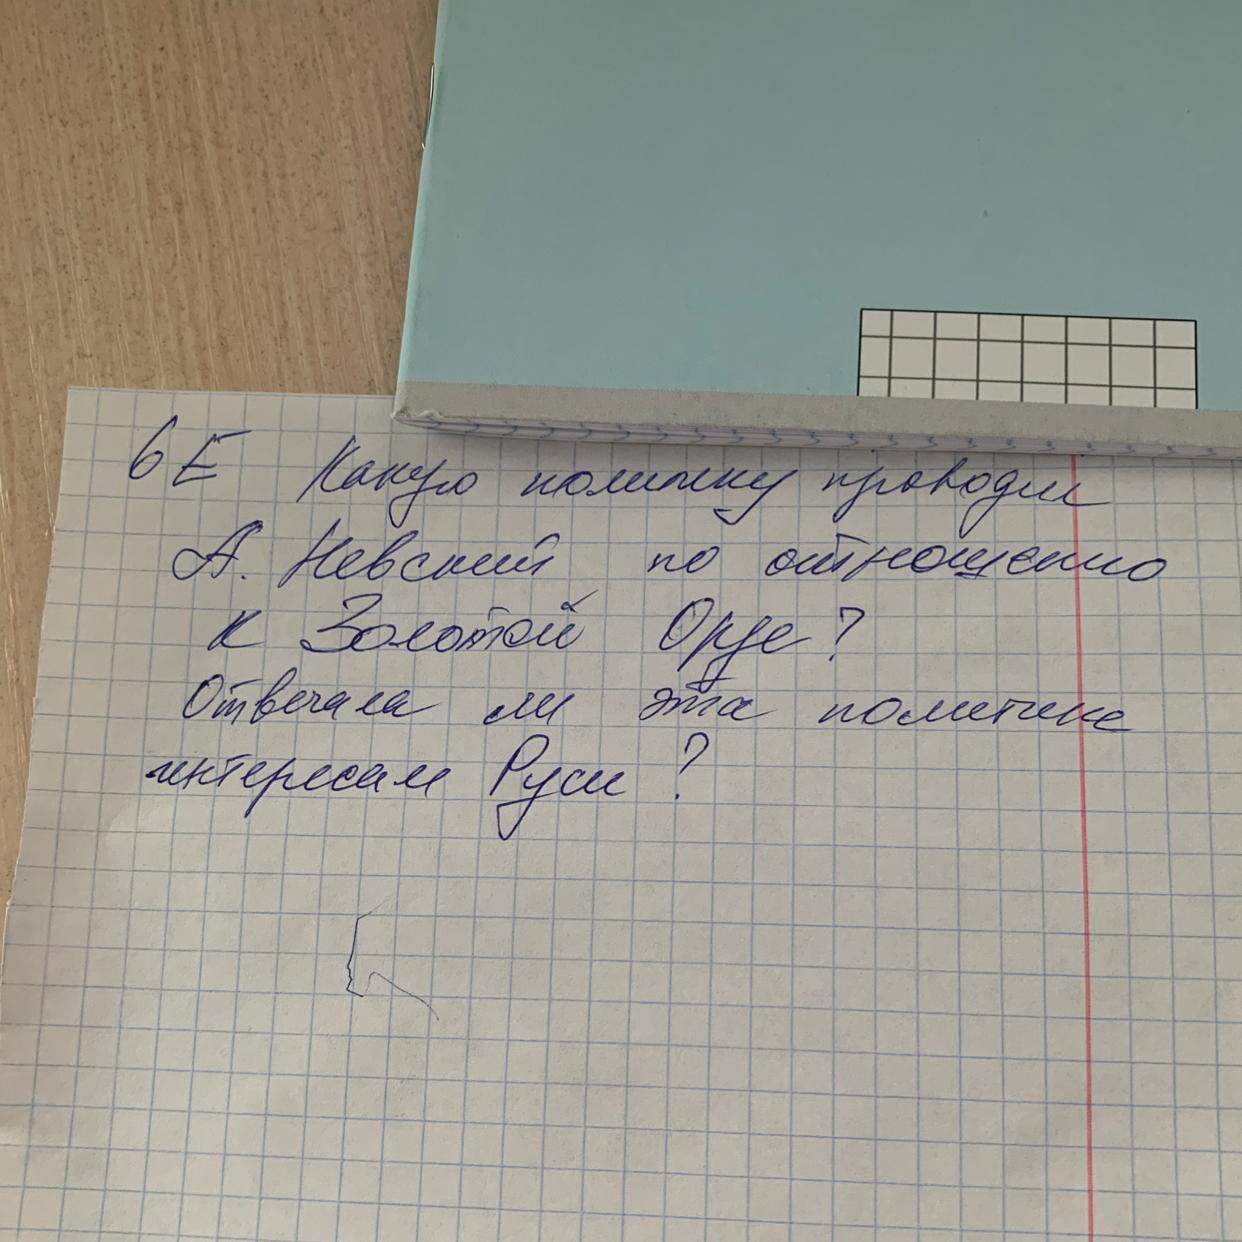 6Е Какую политику проводил
А. Невский по отношению
к Золотой Орде?
Отвечала ли эта политика
интересам Руси?